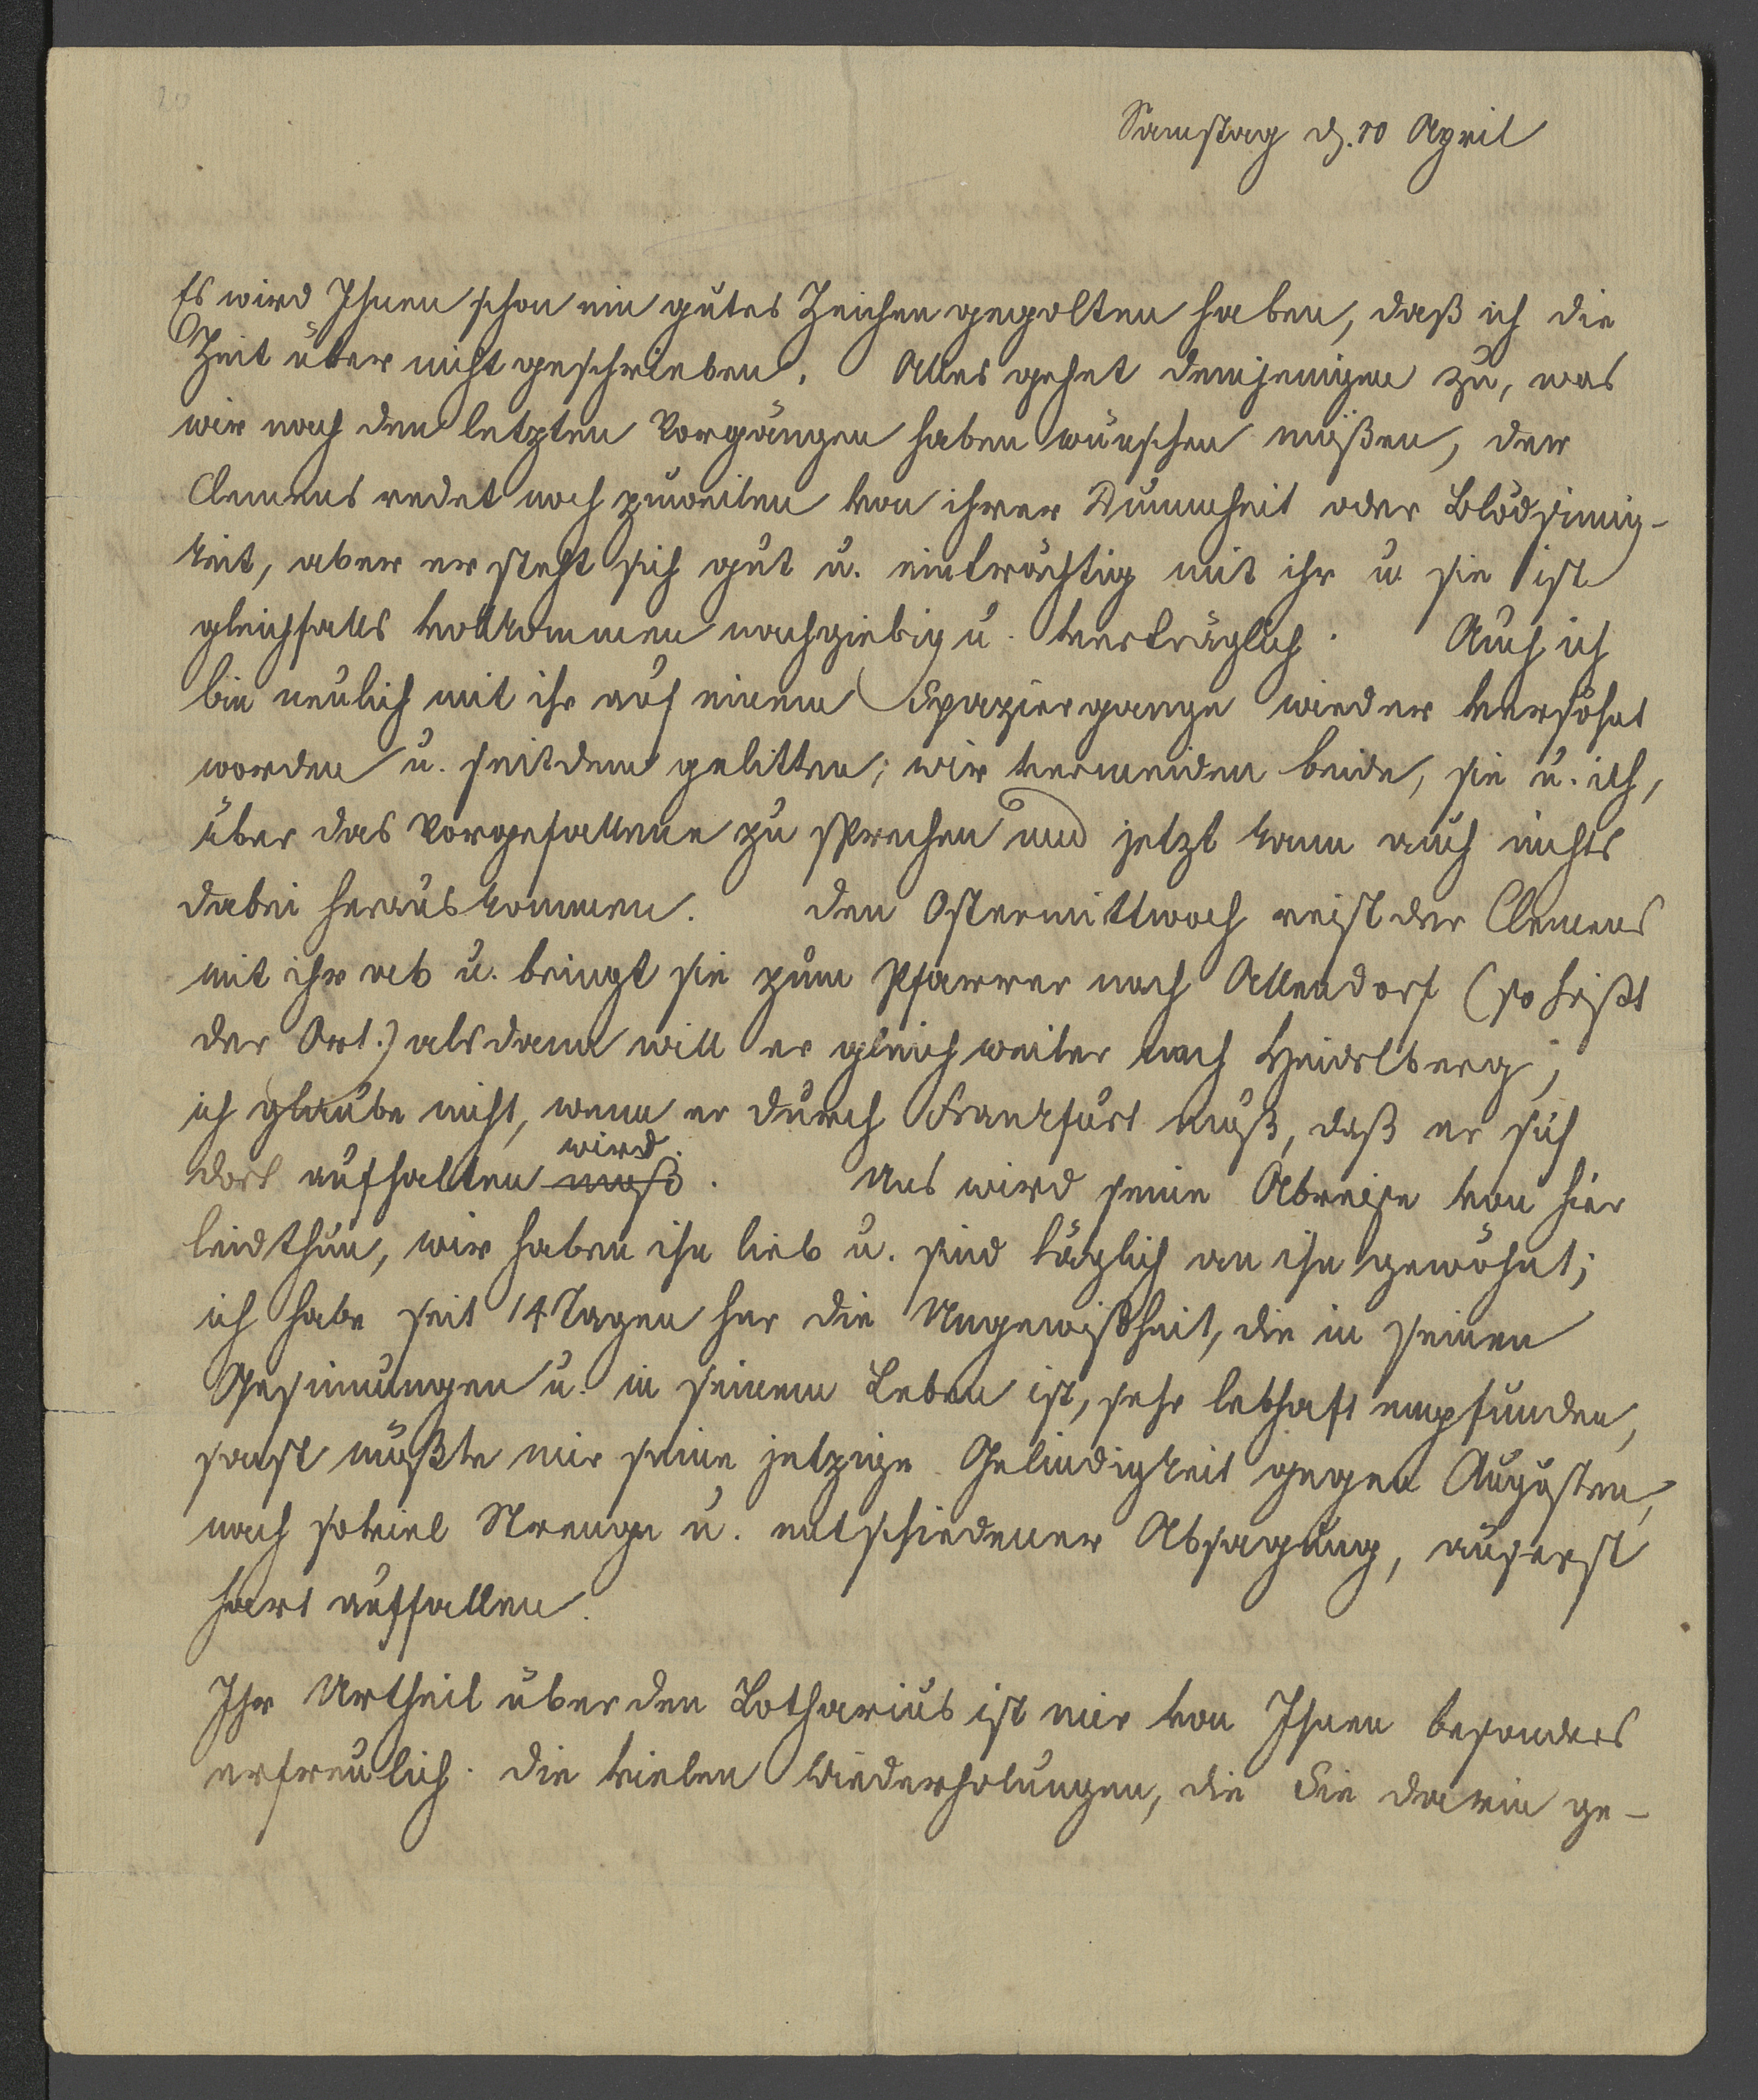 Samstag d. 10 April
Es wird Ihnen schon ein gutes Zeichen gegolten haben, daß ich die
Zeit über nicht geschrieben. Alles gehet demjenigen zu, was
wir nach den letzten Vorgängen haben wünschen müßen, der
Clemens redet noch zuweilen von ihrer Dummheit oder Blödsinnig-
keit, aber er steht sich gut u. einträchtig mit ihr u. sie ist
gleichfalls vollkommen nachgiebig u. verträglich. Auch ich
bin neulich mit ihr auf einem Spaziergange wieder versöhnt
worden u. seitdem gelitten; wir vermeiden beide, sie u. ich,
über das Vorgefallene zu sprechen und jetzt kann auch nichts
dabei herauskommen. Den Ostermittwoch reist der Clemens
mit ihr ab u. bringt sie zum Pfarrer nach Allendorf (so heißt
der Ort.) alsdann will er gleich weiter nach Heidelberg;
ich glaube nicht, wenn er durch Frankfurt muß, daß er sich
wird
dort aufhalten muß. Uns wird seine Abreise von hier
leidthun, wir haben ihn lieb u. sind täglich an ihn gewöhnt;
ich habe seit 14 Tagen her die Ungewißheit, die in seinen
Gesinnungen u. in seinem Leben ist, sehr lebhaft empfunden,
sonst müßte mir seine jetzige Gelindigkeit gegen Augusten,
nach soviel Strenge u. entschiedener Absagung, äuserst
hart auffallen.
Ihr Urtheil über den Lotharius ist mir von Ihnen besonders
erfreulich. Die vielen Wiederholungen, die Sie darin ge-